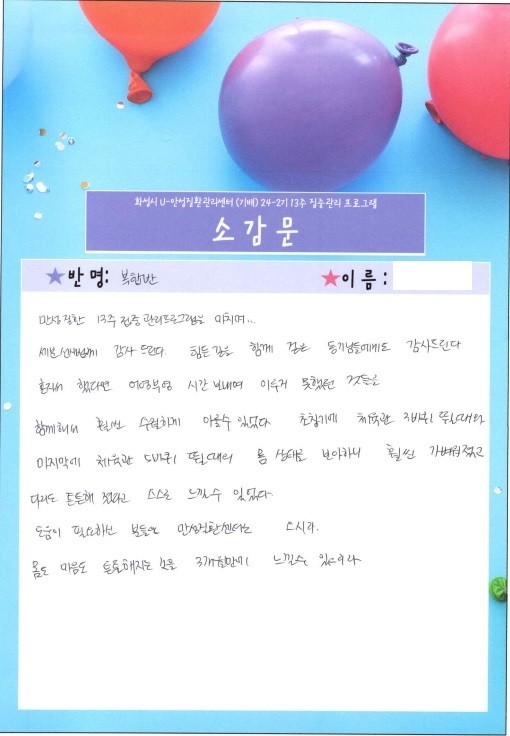 화성시 U-만성질환관리센터 (기배) 24-2기 13주 집중관리 프로그램
소감문
반 명: 북한반
이름:
만성질환 13주 집중 관리프로그램을 마치며...
세분 선생님께 감사 드린다. 힘든 길을 함께 걸은 동기님들에게도 감사드린다
혼자서 했다면 어영부영 시간 보내며 이루지 못했을 것들은
함께해서 훨씬 수월하게 이룰수 있었다. 초창기에 체육관 3바퀴 뛸때와
마지막에 체육관 5바퀴 뛸때의 몸 상태로 보아하니 훨씬 가벼워졌고
다리도 튼튼해 졌다고 스스로 느낄수 있었다.
도움이 필요하신 분들은 만성질환센터로 오시라.
몸도 마음도 튼튼해지는 것을 3개월만에 느낄수 있으리라